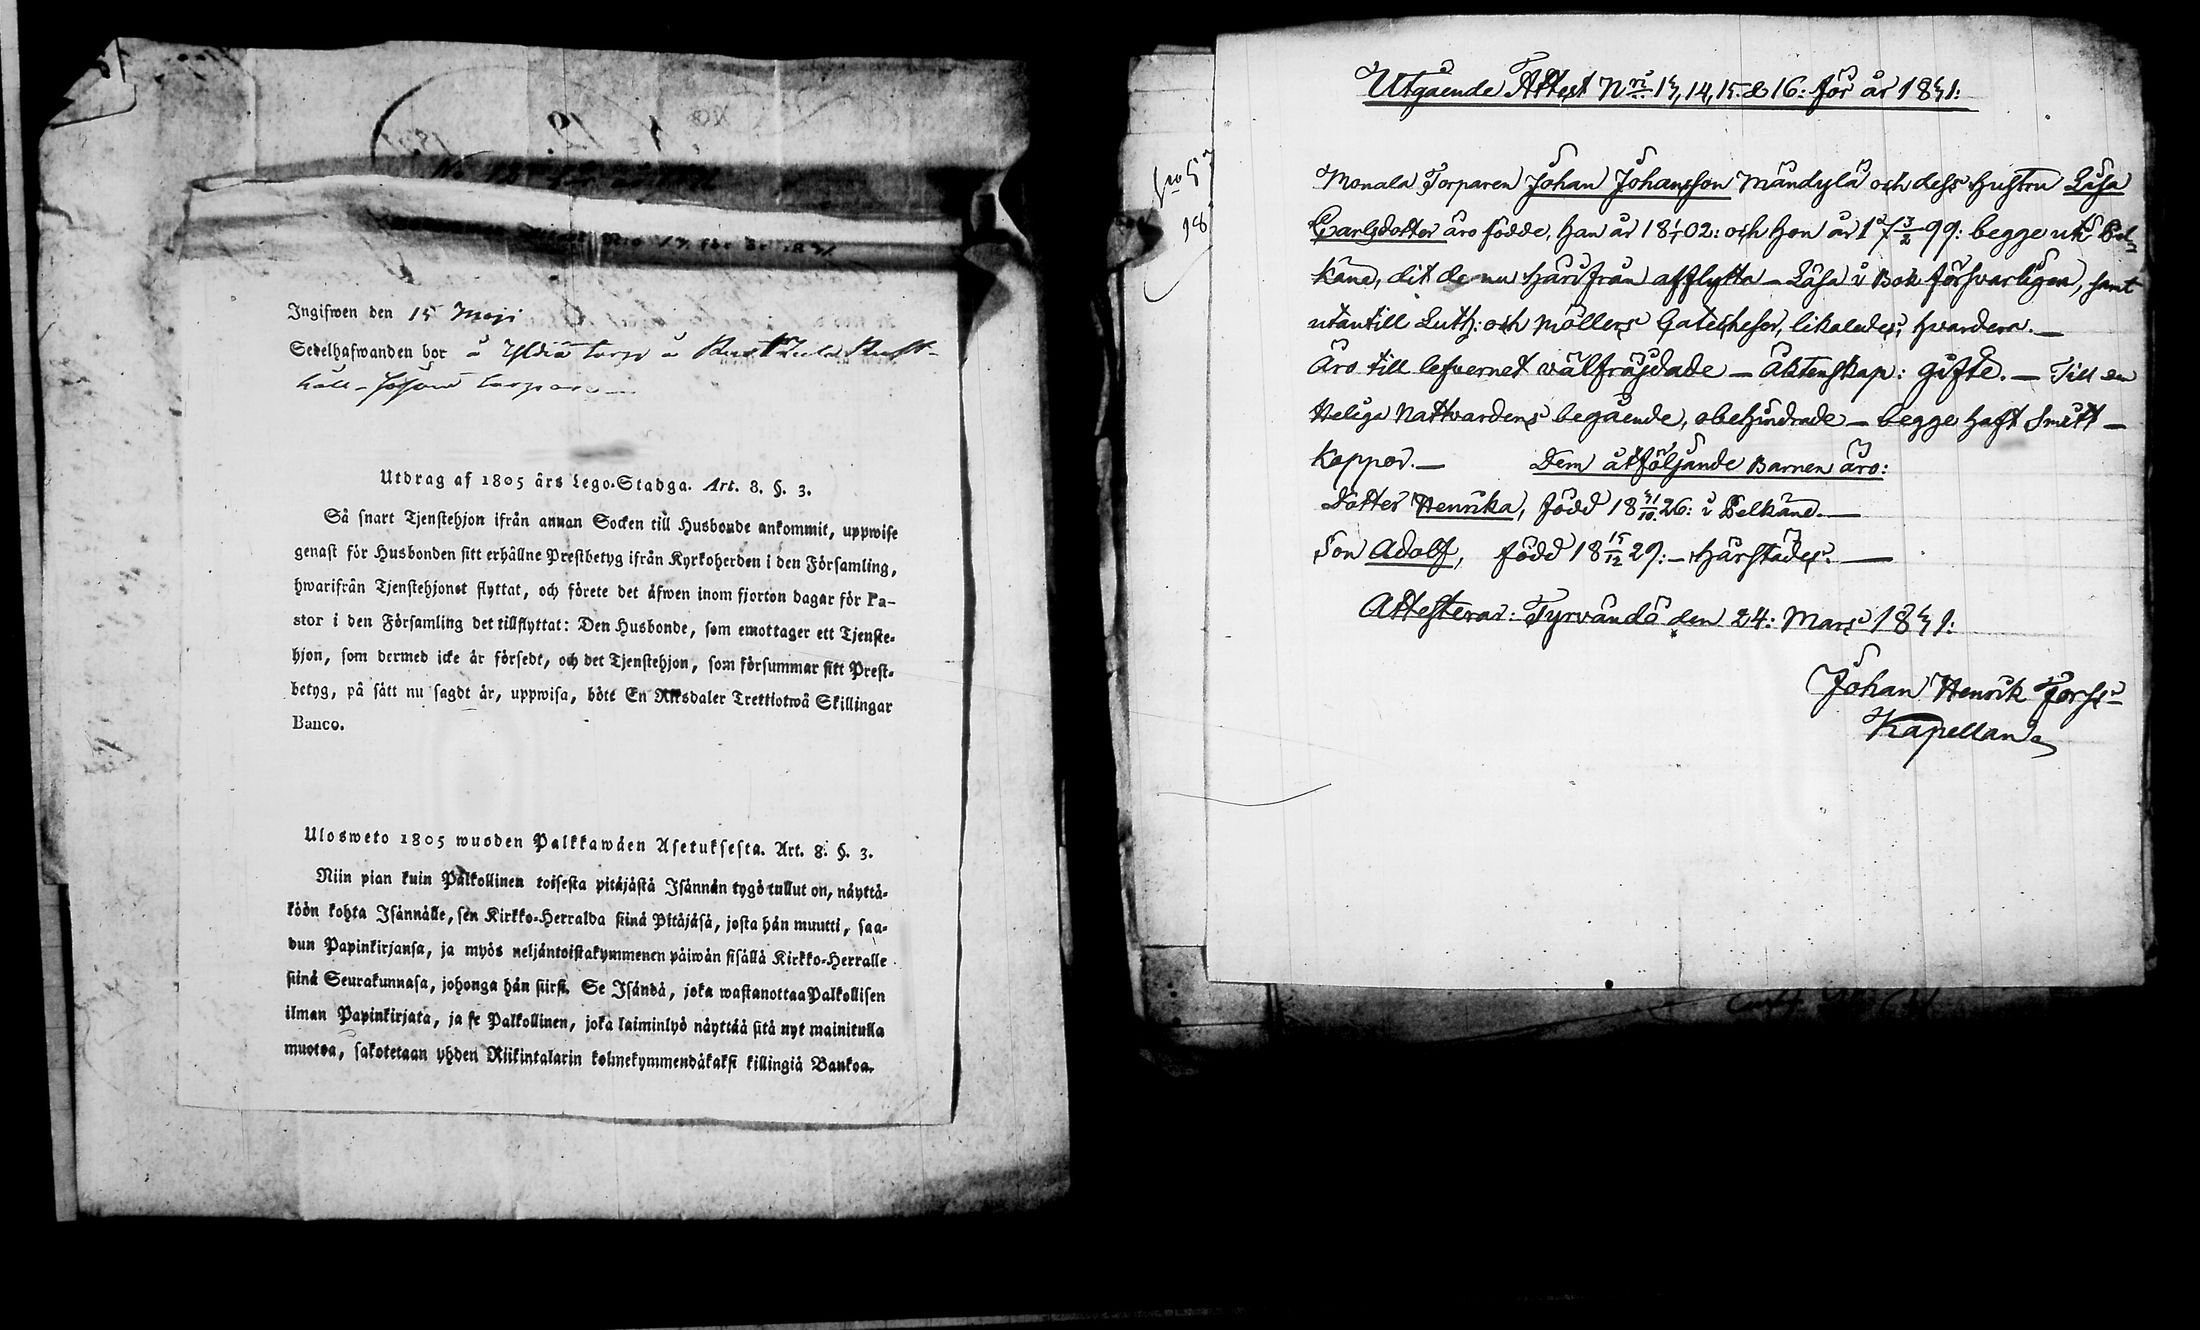 Ingifwen den 15 Maji
Sedelhafwanden bor å Yldiä torp å
håll
Utdrag af 1805 års Lego-Stadga. Art. 8. §. 3.
Så snart Tjenstehjon ifrån annan Socken till Husbonde ankommit, uppwise
genast för Husbonden sitt erhållne Prestbetyg ifrån Kyrkoherden i den Församling,
hwarifrån Tjenstehjonet flyttat, och förete det äfwen inom fjorton dagar för Pa-
stor i den Församling det tillflyttat: Den Husbonde, som emottager ett Tjenste-
hjon, som dermed icke är försedt, och det Tjenstehjon, som försummar sitt Prest-
betyg, på sätt nu sagdt är, uppwisa, böte En Riksdaler Trettiotwå Skillingar
Banco.
Ulosweto 1805 wuoden Palkkawäen Asetuksesta. Art. 8. §. 3.
Niin pian kuin Palkollinen toisesta pitäjästä Isännän tygö tullut on, näyttä-
köön kohta Isännälle, sen Kirkko-Herralda siinä Pitäjäsä, josta hän muutti, saa-
dun Papinkirjansa, ja myös neljäntoistakymmenen päiwän sisällä Kirkko-Herralle
siinä Seurakunnasa, johonga hän siirsi. Se Isändä, joka wastanottaa Palkollisen
ilman Papinkirjata, ja se Palkollinen, joka laiminlyö näyttää sitä nyt mainitulla
muotoa, sakotetaan yhden Riikintalarin kolmekymmendäkaksi killingiä Bankoa.
Utgående Attest N:ris 13, 14, 15. & 16: för år 1831:
Monala Torparen Johan Johansson Mändylä och dess Hustru Lisa
Carlsdotter äro födde, han år 18 1/1 02: och hon år 17 3/2 99: begge uti Pel-
käne, dit de nu härifrån afflytta – Läsa i Bok försvarligen, samt
utantill Luth: och Möllers Cateches​er, likaledes, hvardera. –
Äro till lefvernet välfräjdade – Äktenskap: gifte. – Till den
Heliga Nattvardens begående, obehindrade – begge haft Smitt –
Koppor. – Dem åtföljande Barnen äro:
Dotter Henrika, född 18 31/10. 26: i Pelkäne. –
Son Adolf, född 18 15/12 29: – härstädes. –
Attesterar: Tyrvändö den 24: Mars 1831:
Johan Henrik Forss
Kapellan